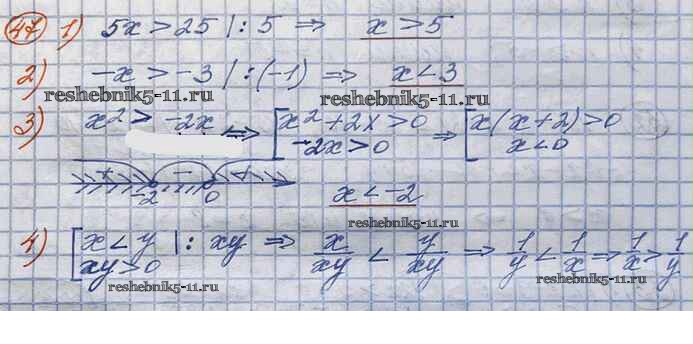 47 1) 5x > 25 |: 5 ⇒ x > 5
2) -x > -3 |: (-1) ⇒ x < 3
reshebnik5-11.ru reshebnik5-11.ru
3) x² > -2x ⇒ [x² + 2x > 0 ⇒ [x(x+2) > 0
-2x > 0 x < 0
+ - +
-2 0 x < -2
reshebnik5-11.ru
4) [x < y |: xy ⇒ x/xy < y/xy ⇒ 1/y < 1/x ⇒ 1/x > 1/y
xy > 0
reshebnik5-11.ru reshebnik5-11.ru